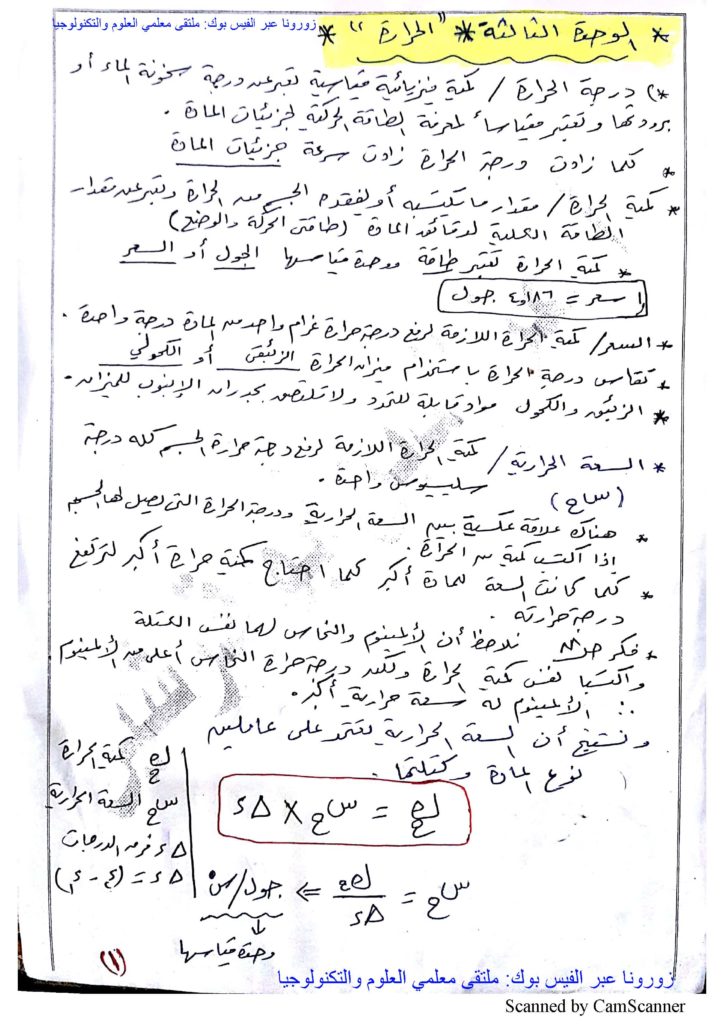 زورونا عبر الفيس بوك: ملتقى معلمي العلوم والتكنولوجيا
* الوحدة الثالثة * "الحرارة" *
*) درجة الحرارة / كمية فيزيائية قياسية تعبر عن درجة سخونة الماء أو
برودتها وتعتبر مقياساً لمعرفة الطاقة الحركية لجزئيات المادة.
* كلما زادت درجة الحرارة زادت سرعة جزئيات المادة
* كمية الحرارة / مقدار ما يكتسبه أو يفقده الجسم من الحرارة وتعبر عن مقدار
الطاقة الكلية لدقائق المادة (طاقتي الحركة والوضع)
* كمية الحرارة تعتبر طاقة وحدة قياسها الجول أو السعر
١ سعر = ٤,١٨٦ جول
* السعر / كمية الحرارة اللازمة لرفع درجة حرارة غرام واحد من المادة درجة واحدة.
* تقاس درجة الحرارة باستخدام ميزان الحرارة الزئبقي أو الكحولي
* الزئبق والكحول مواد قابلة للتمدد ولا تلتصق بجدران الانبوب للميزان.
* السعة الحرارية / كمية الحرارة اللازمة لرفع درجة حرارة الجسم كله درجة
سليسيوس واحدة.
(سح)
* هناك علاقة عكسية بين السعة الحرارية ودرجة الحرارة التي يصل لها الجسم
إذا اكتسب كمية من الحرارة.
* كلما كانت السعة للمادة أكبر كلما احتاج كمية حرارة أكبر لترتفع
درجة حرارته.
* فكر ص نلاحظ أن الألمينيوم والنحاس لهما نفس الكتلة
واكتسبا نفس كمية الحرارة ولكن درجة حرارة النحاس أعلى من الألمينيوم
∴ الألمينيوم له سعة حرارية أكبر.
ونستنتج أن السعة الحرارية تعتمد على عاملين
نوع المادة وكتلتها.
كح = سح × Δد
كح كمية الحرارة
سح السعة الحرارية
Δد فرق الدرجات
Δد = (د٢ - د١)
سح = كح / Δد => جول/س°
وحدة قياسها
(١)
زورونا عبر الفيس بوك: ملتقى معلمي العلوم والتكنولوجيا
Scanned by CamScanner